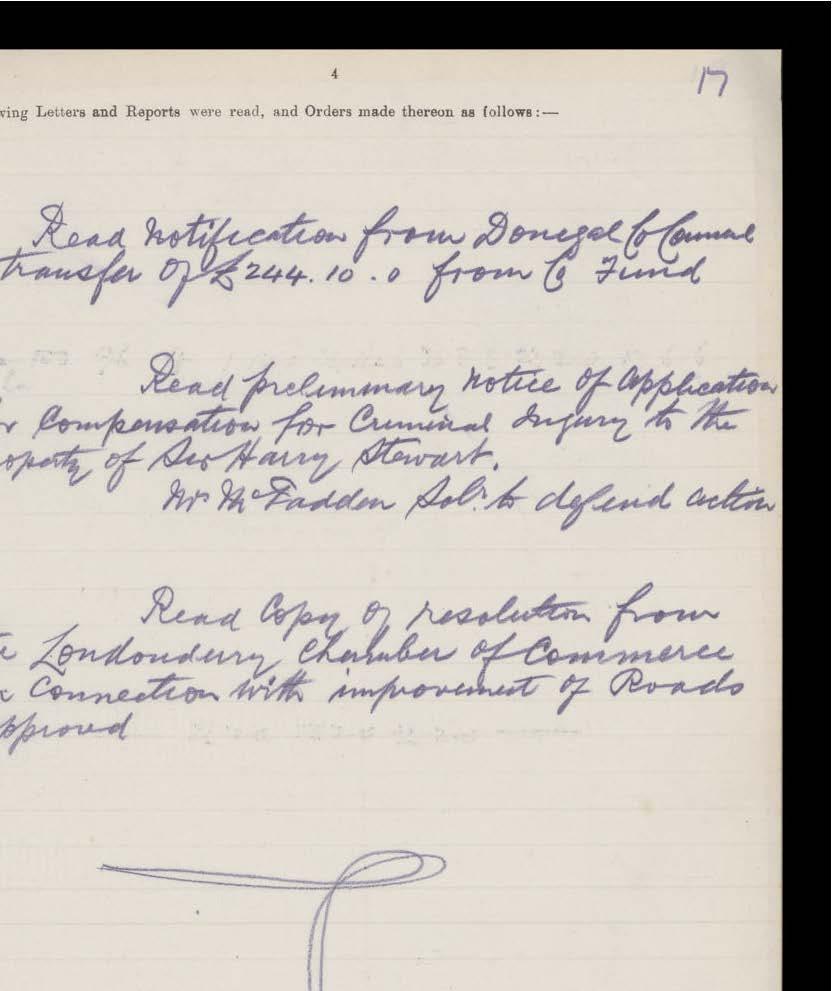 4
17
ving Letters and Reports were read, and Orders made thereon as follows:—
Read notification from Donegal Co Council
transfer of £244.10.0 from Co Fund
Read preliminary notice of Application
r Compensation for Criminal Injury to the
operty of Sir Harry Stewart.
Mr McFadden Solr to defend action
Read Copy of resolution from
e Londonderry Chamber of Commerce
Connection with improvement of Roads
pproved